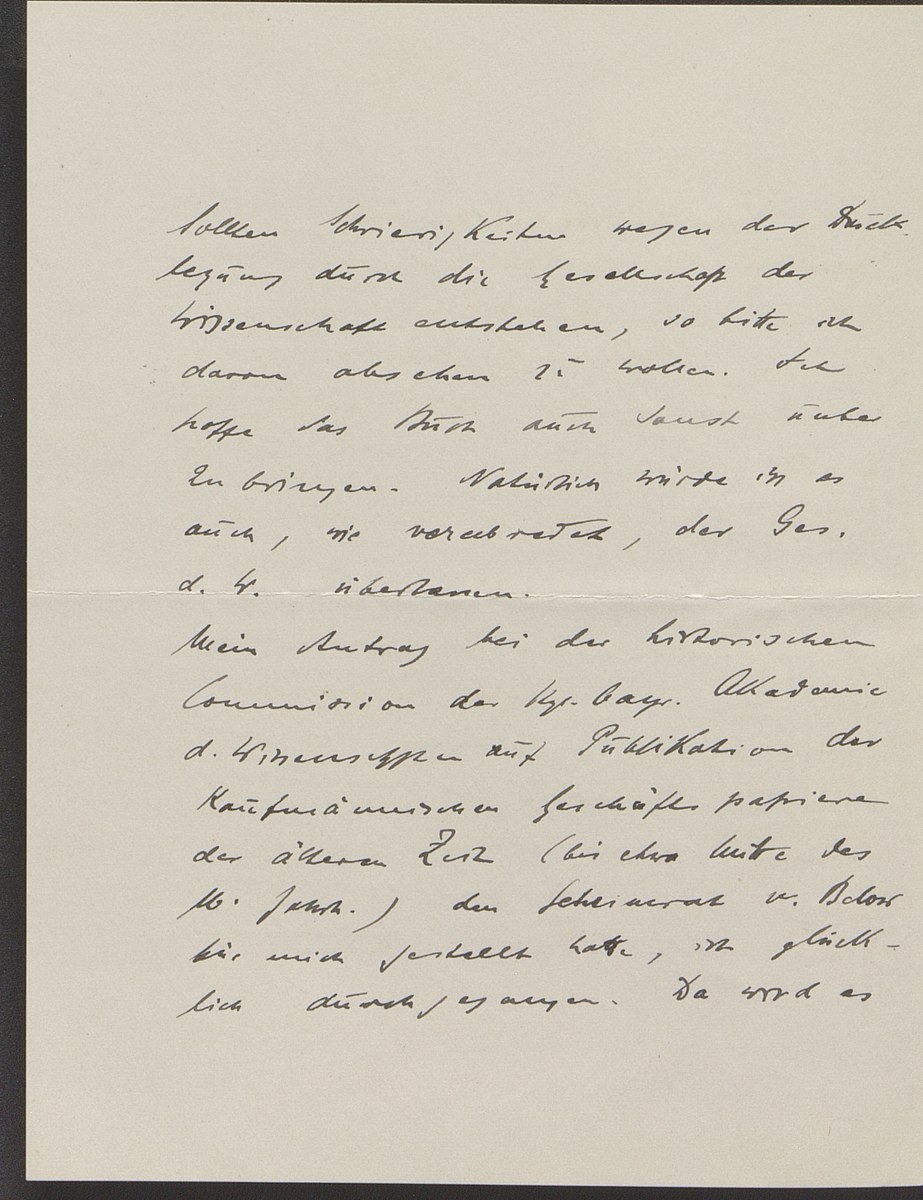 Sollten Schwierigkeiten wegen der Druck-
legung durch die Gesellschaft der
Wissenschaft entstehen, so bitte ich
davon absehen zu wollen. Ich
hoffe das Buch auch sonst unter
zu bringen. Natürlich würde ich es
auch, wie verabredet, der Ges.
d. W. überlassen.
Mein Antrag bei der historischen
Commission der Kgl. bayr. Akademie
d. Wissenschften auf Publikation der
Kaufmännischen Geschäftspapiere
der älteren Zeit (bis etwa Mitte des
16. Jahrh.) den Geheimrat v. Below
für mich gestellt hatte, ist glück-
lich durchgegangen. Da wird es